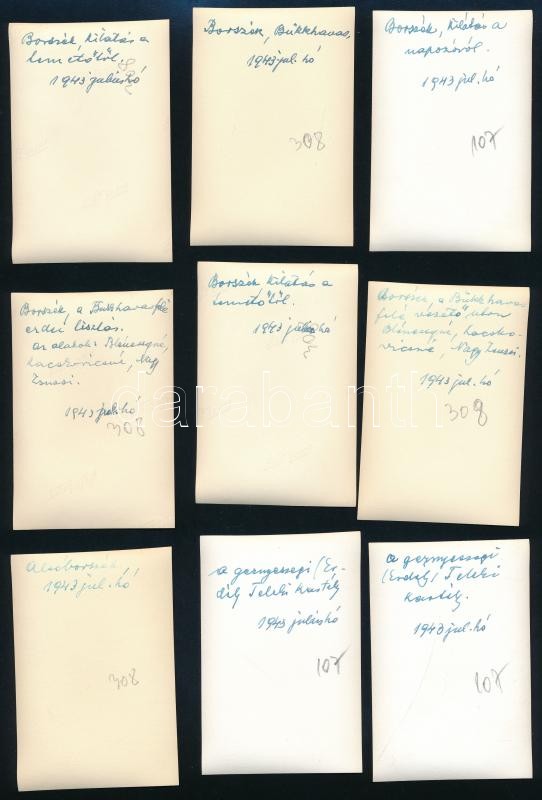 Borszék, kilátás a
temetőtől.
1943 júliushó
Borszék, Bükkhavas,
1943 jul. hó
308
Borszék, kilátás a
napozóról.
1943 jul. hó
107
Borszék, a Bükkhavas felé
erdei tisztás.
az alakok:
Nagy
Zsuzsi.
1943 jul. hó
308
Borszék kilátás a
temetőtől.
1943 júliushó
Borszék, a Bükkhavas
felé vezető úton
Nagy Zsuzsi.
1943 jul. hó
308
Alsóborszék,
1943 jul. hó
308
a gernyeszegi (Er-
dély Teleki kastély
1943 júliushó
107
a gernyeszegi
(Erdély) Teleki
kastély.
1943 jul. hó
107
darabanth